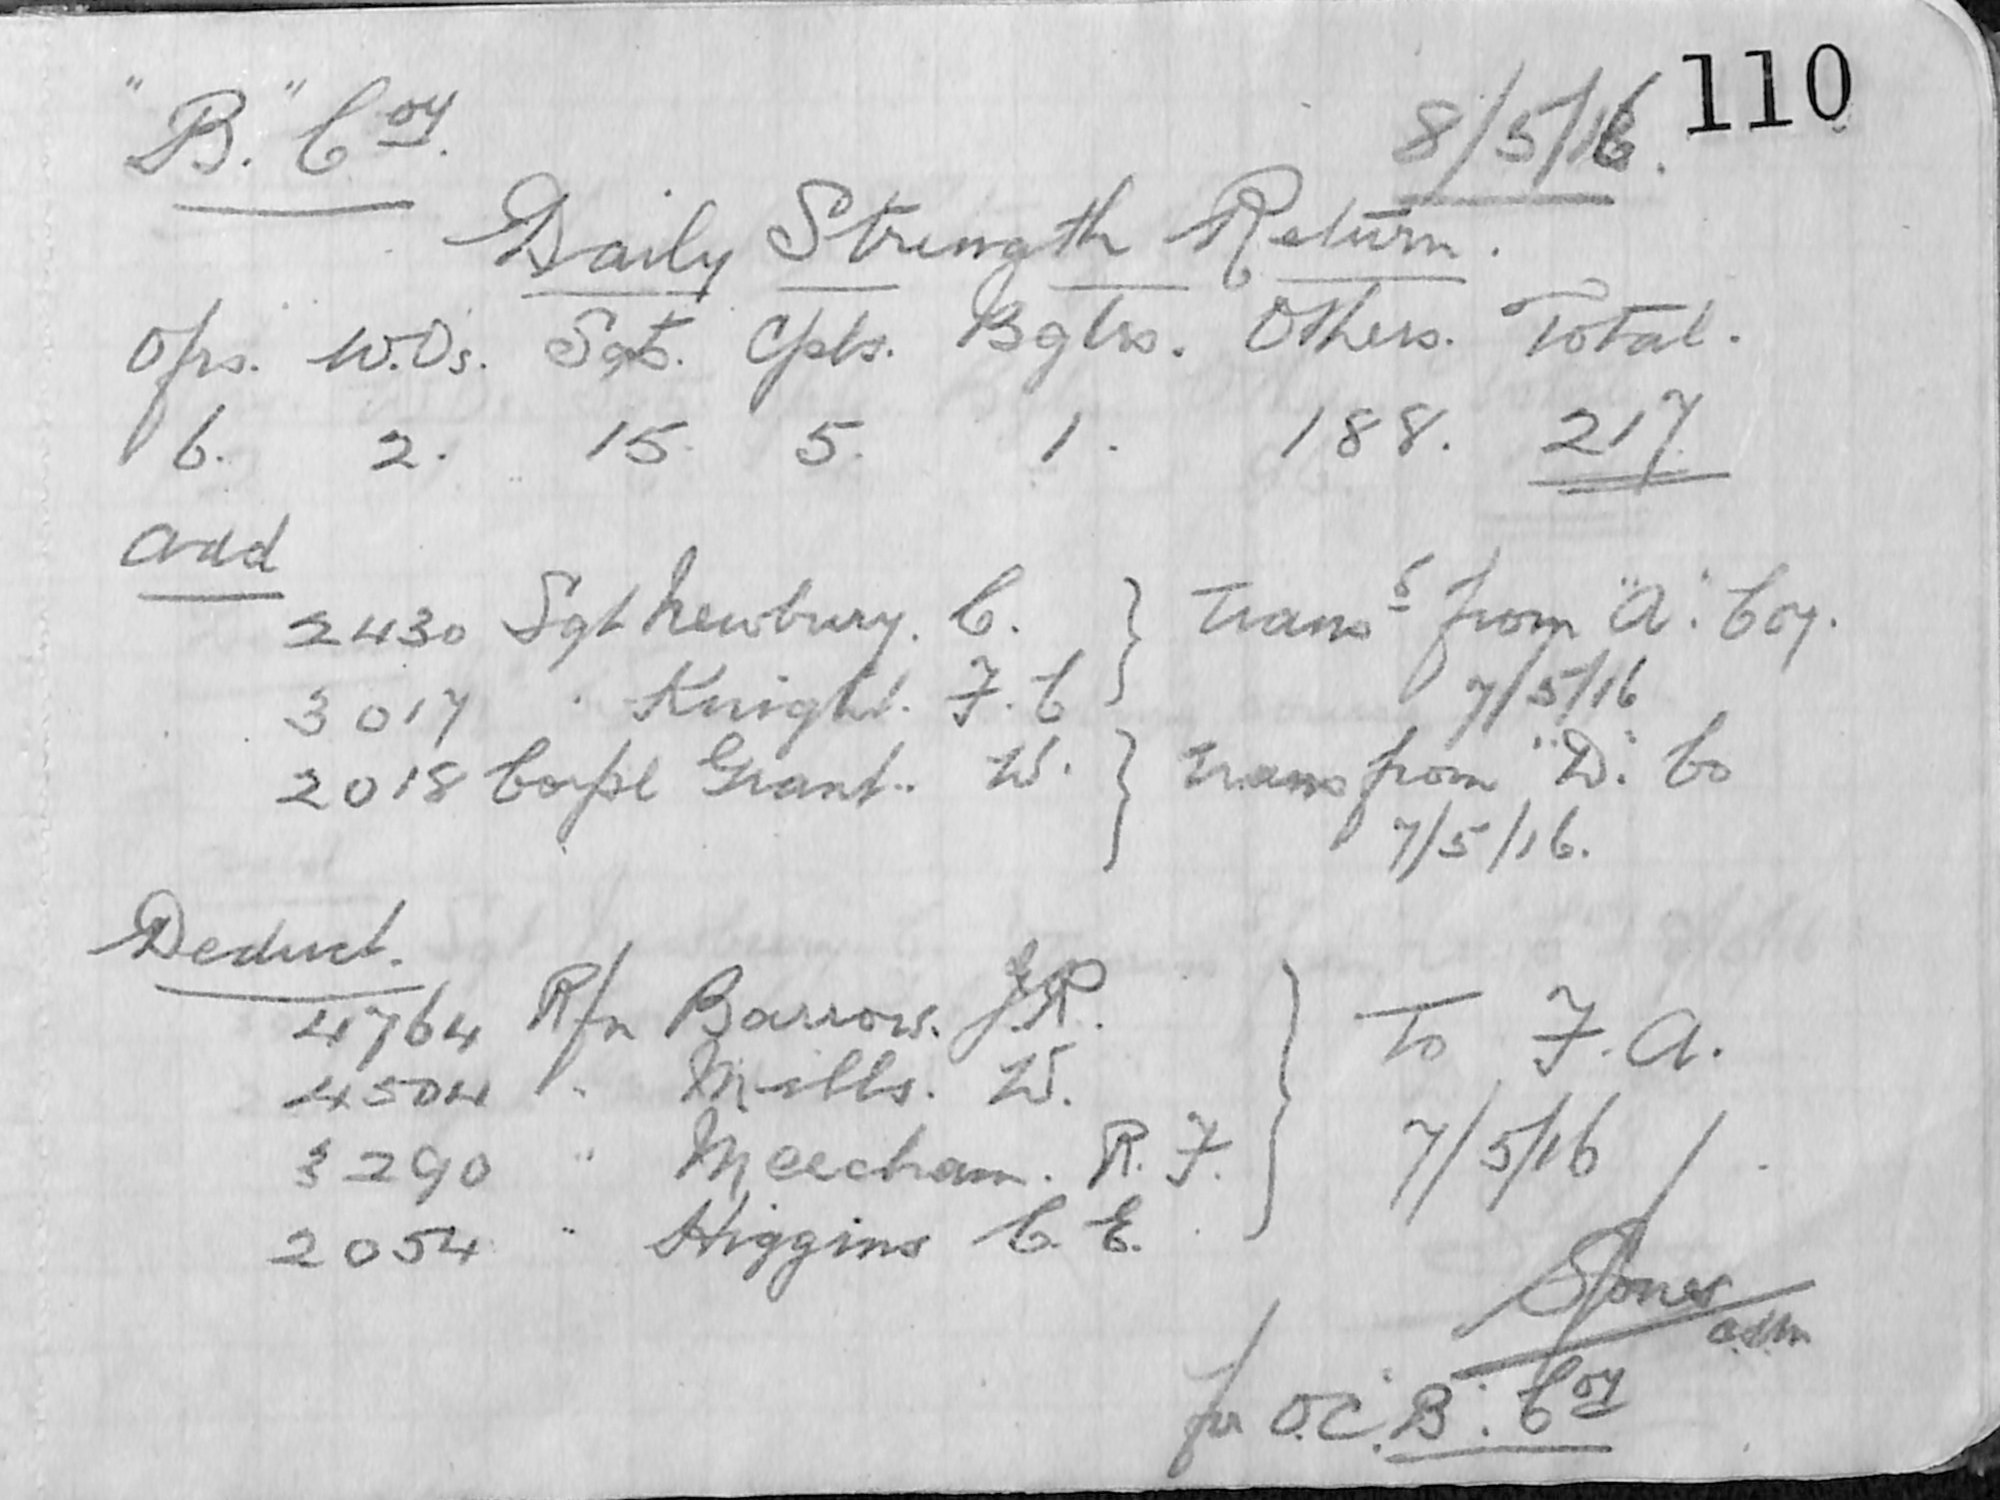 "B." Coy. 8/5/16. 110
Daily Strength Return.
Ofrs. W.Os. Sgts. Cpls. Bglrs. Others. Total.
6. 2. 15. 5. 1. 188. 217.
Add
2430 Sgt Newbury. C. } Transf from "A". Coy.
3017 " Knight. F. C 7/5/16
2018 Corpl Grant. W. } Trans from "D". Co
7/5/16.
Deduct.
4764 R/n Barrow. J.R. } To F. A.
4504 " Mills. W.
3290 " Meecham. R. F. 7/5/16
2054 " Higgins C. E.
SJones
for O.C. "B". Coy